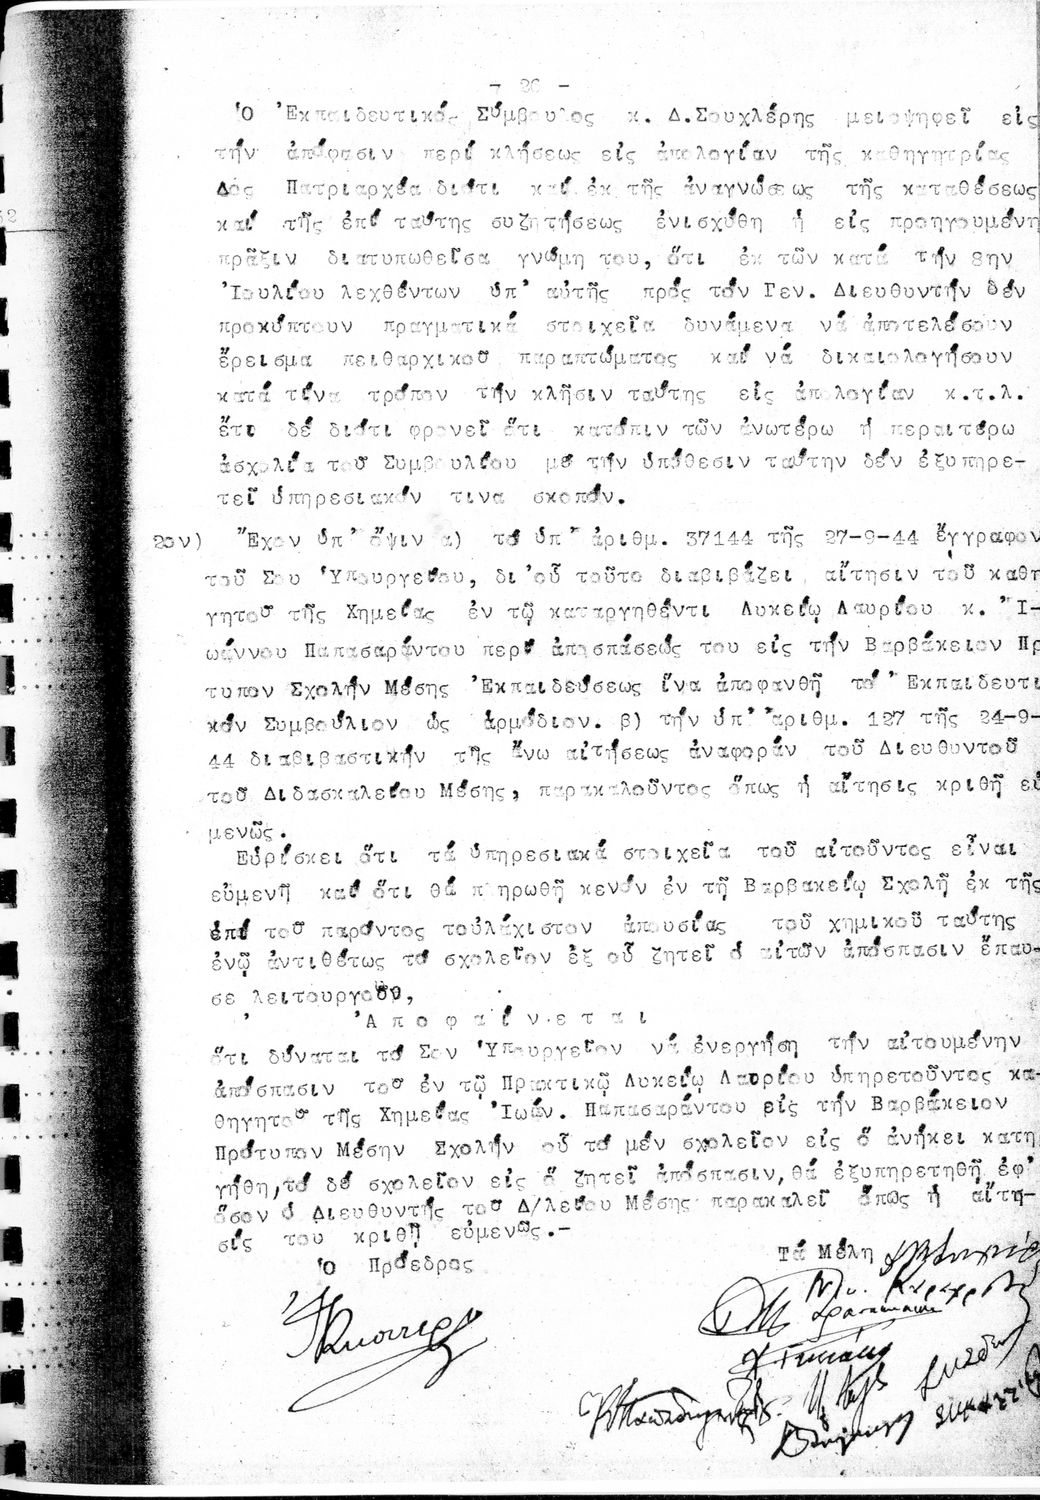 - 26 -
Ὁ Ἐκπαιδευτικός Σύμβουλος κ. Δ.Σουχλέρης μειοψηφεῖ εἰς
τήν ἀπόφασιν περί κλήσεως εἰς ἀπολογίαν τῆς καθηγητρίας
Δός Πατριαρχέα διότι καί ἐκ τῆς ἀναγνώσεως τῆς καταθέσεως
καί τῆς ἐπί ταύτης συζητήσεως ἐνισχύθη ἡ εἰς προηγουμένην
πρᾶξιν διατυπωθεῖσα γνώμη του, ὅτι ἐκ τῶν κατά τήν 8ην
Ἰουλίου λεχθέντων ὑπ' αὐτῆς πρός τόν Γεν. Διευθυντήν δέν
προκύπτουν πραγματικά στοιχεῖα δυνάμενα νά ἀποτελέσουν
ἔρεισμα πειθαρχικοῦ παραπτώματος καί νά δικαιολογήσουν
κατά τίνα τρόπον τήν κλῆσιν ταύτης εἰς ἀπολογίαν κ.τ.λ.
ἔτι δέ διότι φρονεῖ ὅτι κατόπιν τῶν ἀνωτέρω ἡ περαιτέρω
ἀσχολία τοῦ Συμβουλίου μέ τήν ὑπόθεσιν ταύτην δέν ἐξυπηρε-
τεῖ ὑπηρεσιακόν τινα σκοπόν.
2ον) Ἔχον ὑπ' ὄψιν α) τό ὑπ' ἀριθμ. 37144 τῆς 27-9-44 ἔγγραφον
τοῦ Σου Ὑπουργείου, δι'οὗ τοῦτο διαβιβάζει αἴτησιν τοῦ καθη
γητοῦ τῆς Χημείας ἐν τῷ καταργηθέντι Λυκείῳ Λαυρίου κ. Ἰ-
ωάννου Παπασαράντου περί ἀποσπάσεώς του εἰς τήν Βαρβάκειον Πρ
τυπον Σχολήν Μέσης Ἐκπαιδεύσεως ἵνα ἀποφανθῇ τό Ἐκπαιδευτι
κόν Συμβούλιον ὡς ἁρμόδιον. β) τήν ὑπ' ἀριθμ. 127 τῆς 24-9-
44 διαβιβαστικήν τῆς ἄνω αἰτήσεως ἀναφοράν τοῦ Διευθυντοῦ
τοῦ Διδασκαλείου Μέσης, παρακαλοῦντος ὅπως ἡ αἴτησις κριθῇ εὐ
μενῶς.
Εὑρίσκει ὅτι τά ὑπηρεσιακά στοιχεῖα τοῦ αἰτοῦντος εἶναι
εὐμενῆ καί ὅτι θά πληρωθῇ κενόν ἐν τῇ Βαρβακείῳ Σχολῇ ἐκ τῆς
ἐπί τοῦ παρόντος τοὐλάχιστον ἀπουσίας τοῦ χημικοῦ ταύτης
ἐνῷ ἀντιθέτως τό σχολεῖον ἐξ οὗ ζητεῖ ὁ αἰτῶν ἀπόσπασιν ἔπαυ-
σε λειτουργοῦν,
Ἀ π ο φ α ί ν ε τ α ι
ὅτι δύναται τό Σον Ὑπουργεῖον νά ἐνεργήση τήν αἰτουμένην
ἀπόσπασιν τοῦ ἐν τῷ Πρακτικῷ Λυκείῳ Λαυρίου ὑπηρετοῦντος κα-
θηγητοῦ τῆς Χημείας Ἰωάν. Παπασαράντου εἰς τήν Βαρβάκειον
Πρότυπον Μέσην Σχολήν οὗ τό μέν σχολεῖον εἰς ὅ ἀνήκει κατη
γήθη,τό δέ σχολεῖον εἰς ὅ ζητεῖ ἀπόσπασιν,θά ἐξυπηρετηθῇ ἐφ'
ὅσον ὁ Διευθυντής τοῦ Δ/λείου Μέσης παρακαλεῖ ὅπως ἡ αἴτη-
σίς του κριθῇ εὐμενῶς.-
Ὁ Πρόεδρος
Τά Μέλη